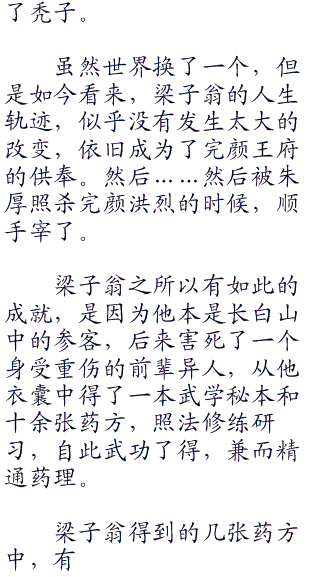 了秃子。
虽然世界换了一个，但
是如今看来，梁子翁的人生
轨迹，似乎没有发生太大的
改变，依旧成为了完颜王府
的供奉。然后……然后被朱
厚照杀完颜洪烈的时候，顺
手宰了。
梁子翁之所以有如此的
成就，是因为他本是长白山
中的参客，后来害死了一个
身受重伤的前辈异人，从他
衣囊中得了一本武学秘本和
十余张药方，照法修练研
习，自此武功了得，兼而精
通药理。
梁子翁得到的几张药方
中，有